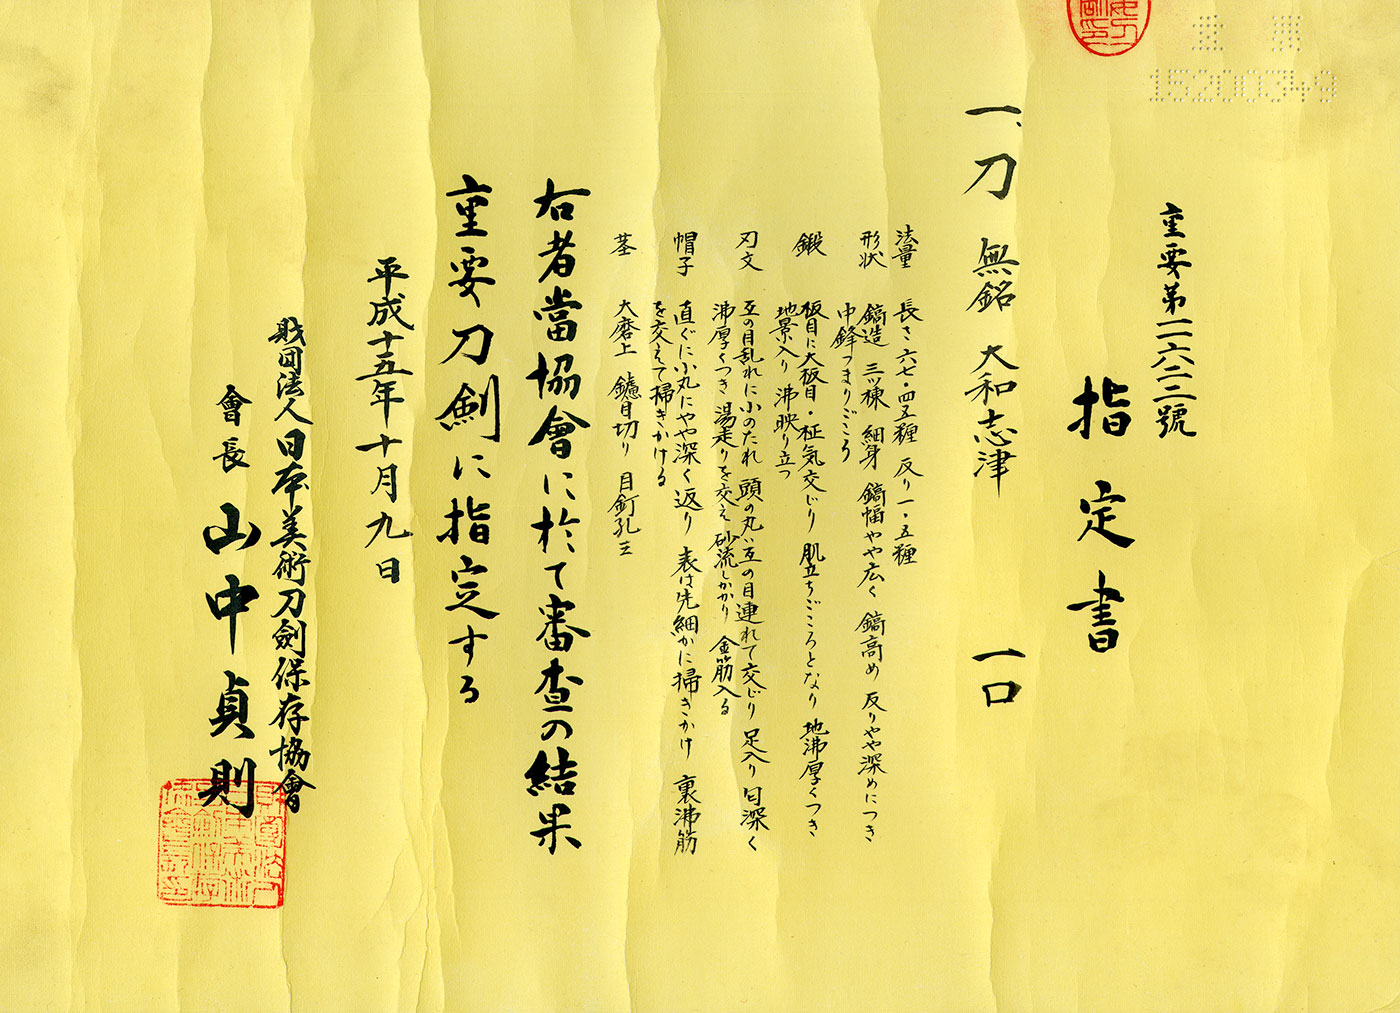 15200349
重要第一一六二二號
指定書
一、刀 無銘 大和志津 一口
法量 長さ六七・四五糎 反り一・五糎
形状 鎬造 三ッ棟 細身 鎬幅やや広く 鎬高め 反りやや深めにつき
中鋒つまりごころ
鍛 板目に大板目・柾気交じり 肌立ちごころとなり 地沸厚くつき
地景入り 沸映り立つ
刃文 互の目乱れに小のたれ 頭の丸い互の目連れて交じり 足入り 匂深く
沸厚くつき 湯走りを交え 砂流しかかり 金筋入る
帽子 直ぐに小丸にやや深く返り 表は先細かに掃きかけ 裏沸筋
を交えて掃きかける
茎 大磨上 鑢目切り 目釘孔三
右者當協會に於て審査の結果
重要刀剣に指定する
平成十五年十月九日
財団法人日本美術刀劍保存協會
會長 山中貞則